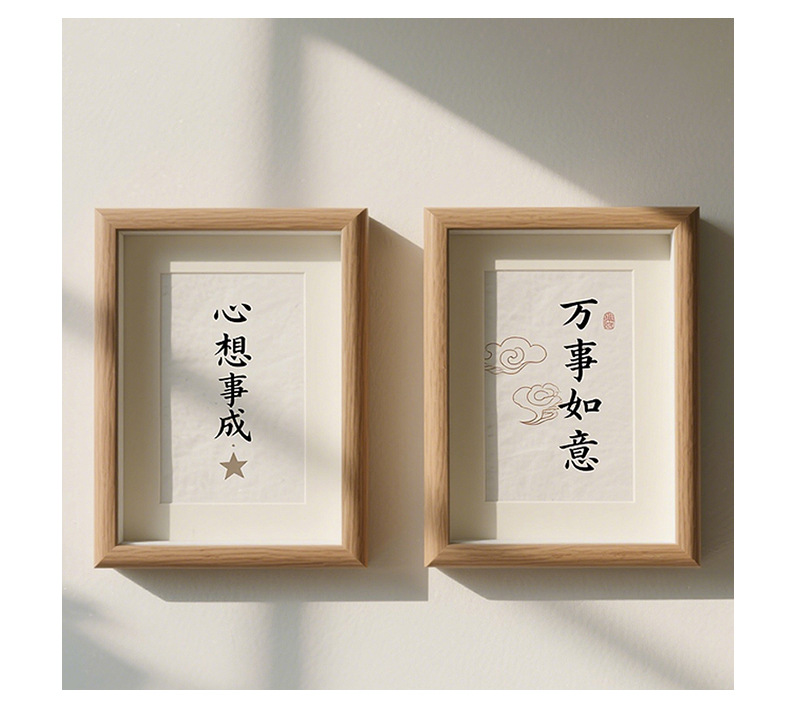 心想事成
万事如意